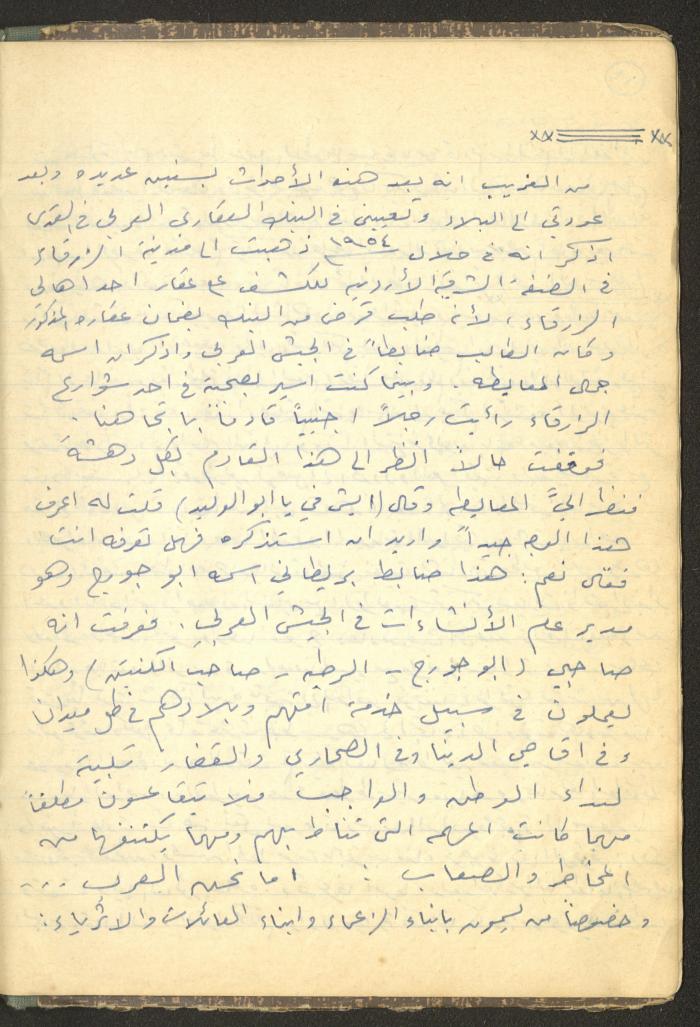 من الغريب انه بعد هذه الأحداث بسنين عديده وبعد
عودتي الى البلاد وتعييني في البنك العقاري العربي في القدس
اذكر انه في خلال ١٩٥٤ ذهبت الى مدينة الزرقاء
في الضفة الشرقية الأردنيه للكشف على عقار احد اهالي
الزرقاء، لأنه طلب قرض من البنك بضمان عقاره المذكور
وكان الطالب ضابطاً في الجيش العربي واذكر ان اسمه
جمال المعايطه. وبينما كنت اسير بصحبته في احد شوارع
الزرقاء رأيت رجلاً اجنبياً قادماً باتجاهنا.
فوقفت حالاً انظر الى هذا القادم بكل دهشة
فنظر اليَّ المعايطه وقال (ايش في يا ابو الوليد) قلت له اعرف
هذا الوجه جيداً واريد ان استذكره فهل تعرفه انت
فقال نعم: هذا ضابط بريطاني اسمه ابو جورج وهو
مدير علم الأنشاءات في الجيش العربي. فعرفت انه
صاحبي (ابو جورج - - صاحب الكنبة) وهكذا
يعملون في سبيل خدمة امتهم وبلادهم في كل ميدان
وفي اقاصي الدنيا وفي الصحاري والقفار تلبية
لنداء الوطن والواجب فلا يتقاعسون مطلقاً
مهما كانت المهمه التي تناط بهم ومهما يكتنفها من
المخاطر والصعاب : اما نحن العرب ...
وخصوصاً من يسمون بابناء الزعماء وابناء العائلات والاثرياء: